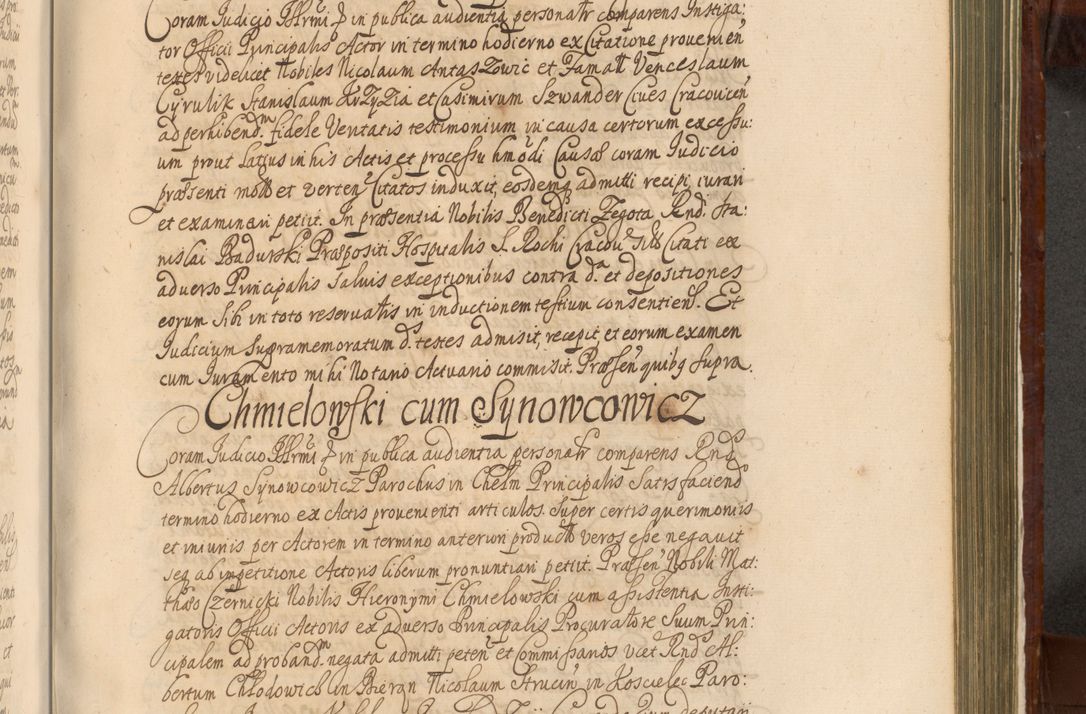 Coram Judicio Illrmi ꝑ in publica audientia personalr comparens Instiga:
tor Officii Principalis Actor in termino hodierno ex Citatione provenien
testes videlicet Nobiles Nicolaum Antaszowic et Famatt Venceslaum
Cyrulik Stanislaum Krzyzia et Casimirum Szwander Cives Cracovien
ad perhibendm fidele Veritatis testimonium in causa certorum excessu:
um prout Latius in his Actis et processu hmodi Causæ coram Judicio
præsenti mott et verten Citatos induxit, eosdemq admitti recipi, iurari
et examinari petiit. In præsentia Nobilis Benedicti Zegota Rnd. Sta:
nislai Badurski Præpositi Hospitalis S. Rochi Cracov Citati ex
adverso Principalis salvis exceptionibus contra da. et depositiones
eorum sibi in toto reservatis in inductionem testium consentiens. Et
Judicium supramemoratum ds. testes admisit, recepit, et eorum examen
cum Juramento mihi Notario Actuario commisit. Præsen quibq supra.
Chmielowski cum Synowcowicz
Coram Judicio Illrmi ꝑ in publica audientia personalr comparens Rnds
Albertus Synowcowicz Parochus in Chełm Principalis Satisfaciend
termino hodierno ex Actis provenienti articulos. super certis querimoniis
et iniuriis per Actorem in termino anteriori productt veros esse negavit
seq ab impetitione Actoris liberum pronuntiari petiit. Præsen Nobili Mat:
thæo Czernicki Nobilis Hieronymi Chmielowski cum assistentia Insti:
gatoris Officii Actoris ex adverso Principalis Procuratore suum Prin:
cipalem ad probandm negata admitti peten et Commissarios vcet Rnds Al:
bertum Chłodowich in Bieran Nicolaum Strucin in Koscielec Paro:
deputari